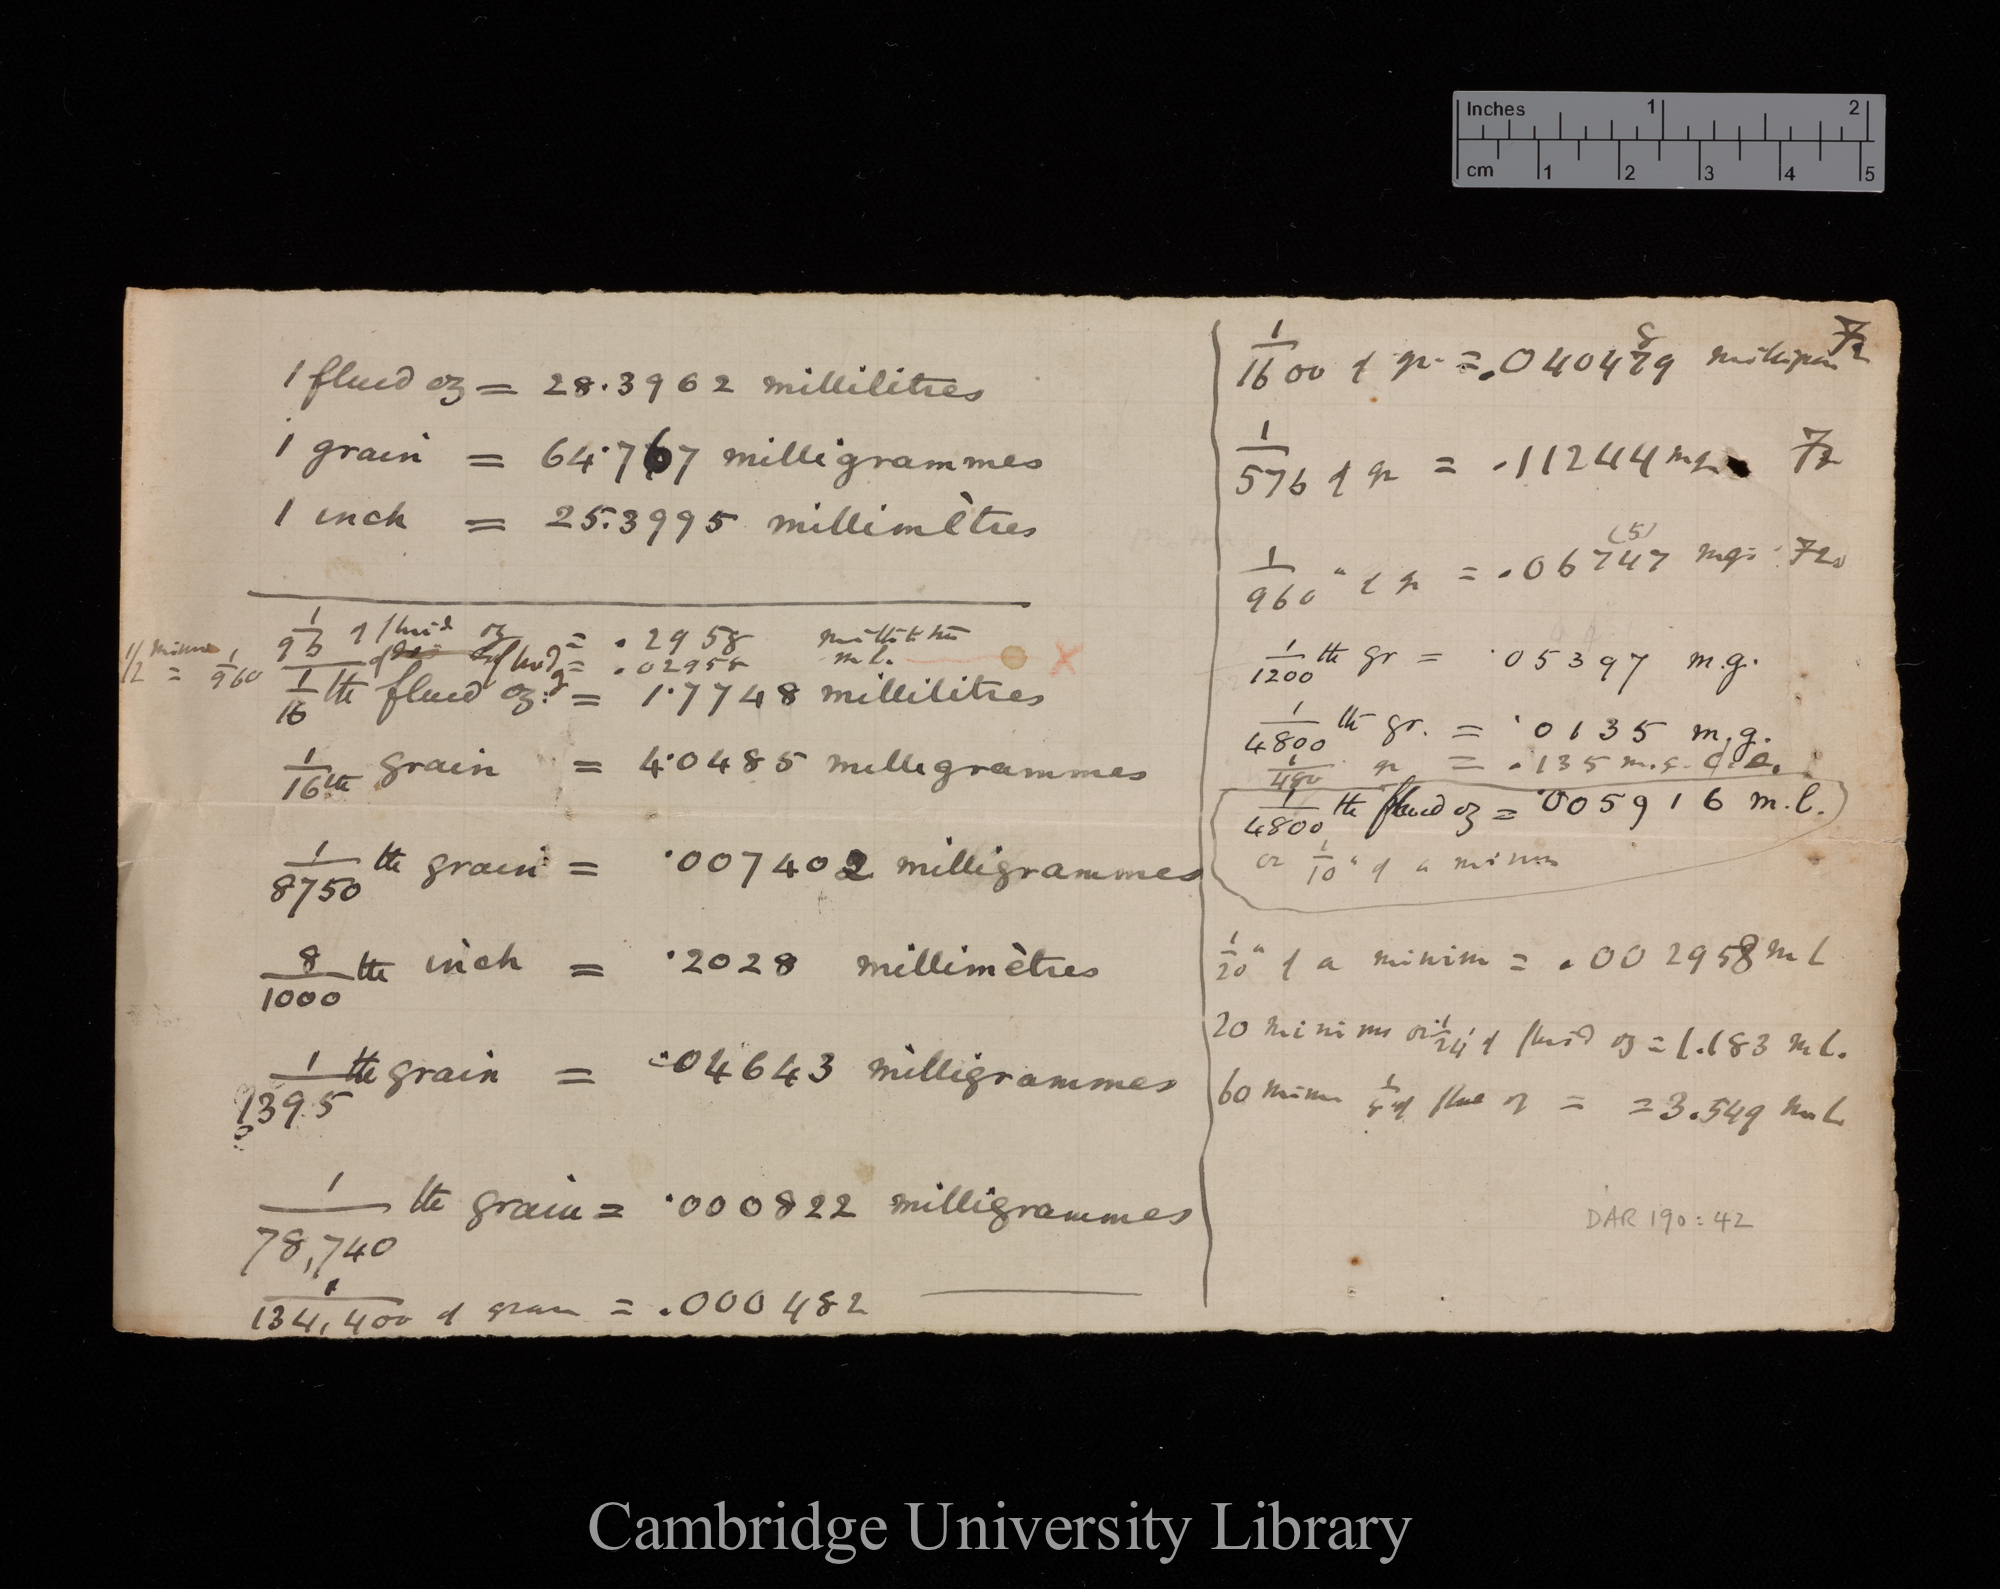 Inches 1 2
cm 1 2 3 4 5
1 fluid oz = 28.3962 millilitres
1 grain = 64.767 milligrammes
1 inch = 25.3995 millimètres
1/96 of fluid oz = .2958 millilitres
1/2 minim = 1/960 of fluid oz = .02958 m l.
X
1/16 th fluid oz. = 1.7748 millilitres
1/16th grain = 4.0485 milligrammes
1/8750 th grain = .007402 milligrammes
8/1000 th inch = .2028 millimètres
1/1395 th grain = .04643 milligrammes
?
1/78,740 th grain = .000822 milligrammes
1/134,400 of grain = .000482
1/1600 of gr = .040479
8
1/576 of gr = .11244 mg
(5)
1/960 " of gr = .06747 mgs
1/1200 th gr = .05397 m.g.
1/4800 th gr. = .0135 m.g.
1/480 gr = .135 m.g.
1/4800 th fluid oz = .005916 m.l.
or 1/10 " of a minim
1/20 " of a minim = .002958 m L
20 minims or 1/24 of fluid oz = 1.183 m L.
60 minims 1/8 of fluid oz = = 3.549 m L
DAR 190:42
Cambridge University Library